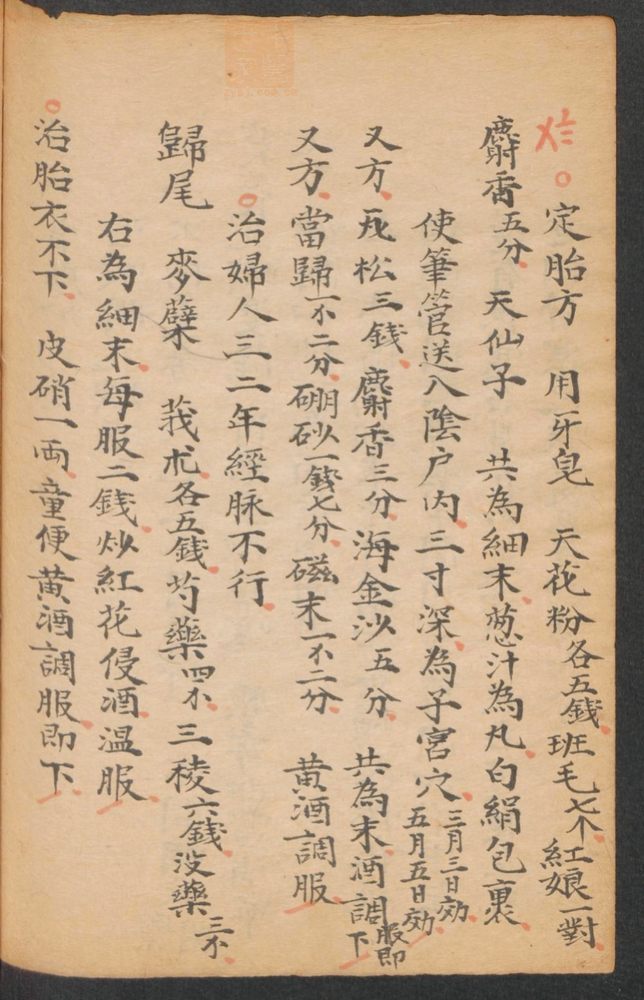 定胎方 用牙皂 天花粉各五錢班毛七个紅娘一對
麝香五分 天仙子 共為細末葱汁為丸白絹包裹
使筆管送入陰户内三寸深為子宮穴三月三日効五月五日効
又方 瓦松三錢麝香三分海金沙五分 共為末酒調服即下
又方當歸一不二分硼砂一錢七分磁末一不二分 黄酒調服
治婦人三二年經脉不行
歸尾 麥蘖 莪朮各五錢芍藥四不三稜六錢没藥三不
右為細末每服二錢炒紅花侵酒温服
治胎衣不下 皮硝一両童便黄酒調服即下